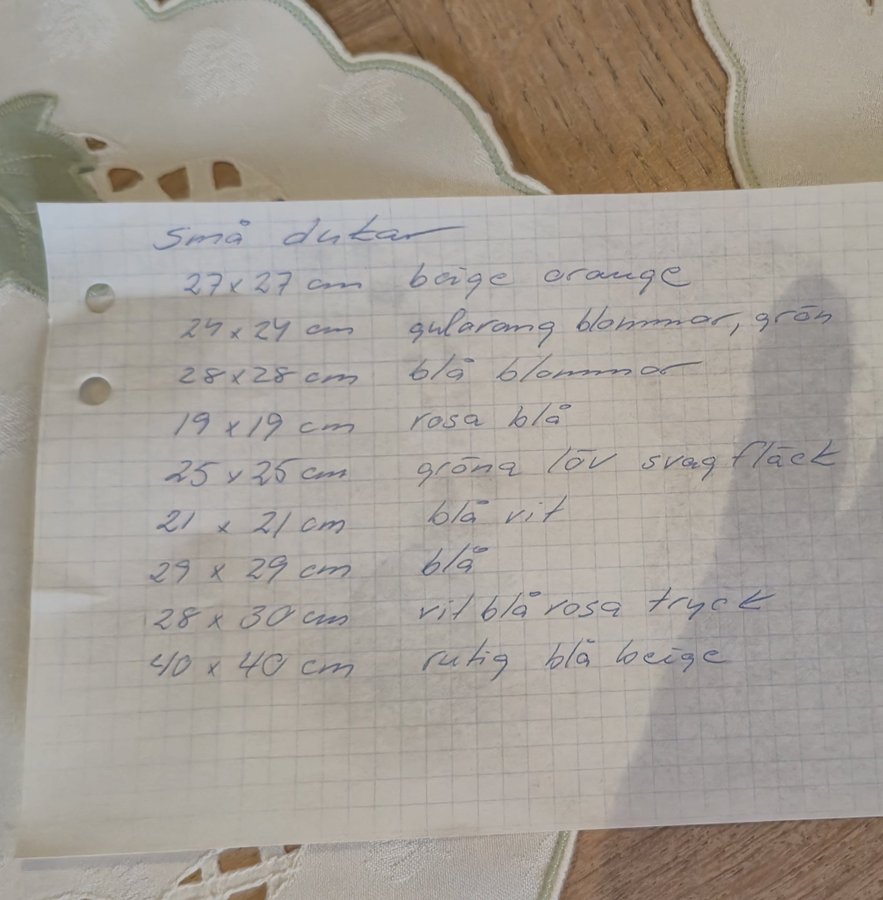 små dukar
27 x 27 cm beige orange
24 x 24 cm gularang blommor, grön
28 x 28 cm blå blommor
19 x 19 cm rosa blå
25 x 25 cm gröna löv svag fläck
21 x 21 cm blå vit
29 x 29 cm blå
28 x 30 cm vit blå rosa tryck
40 x 40 cm rutig blå beige